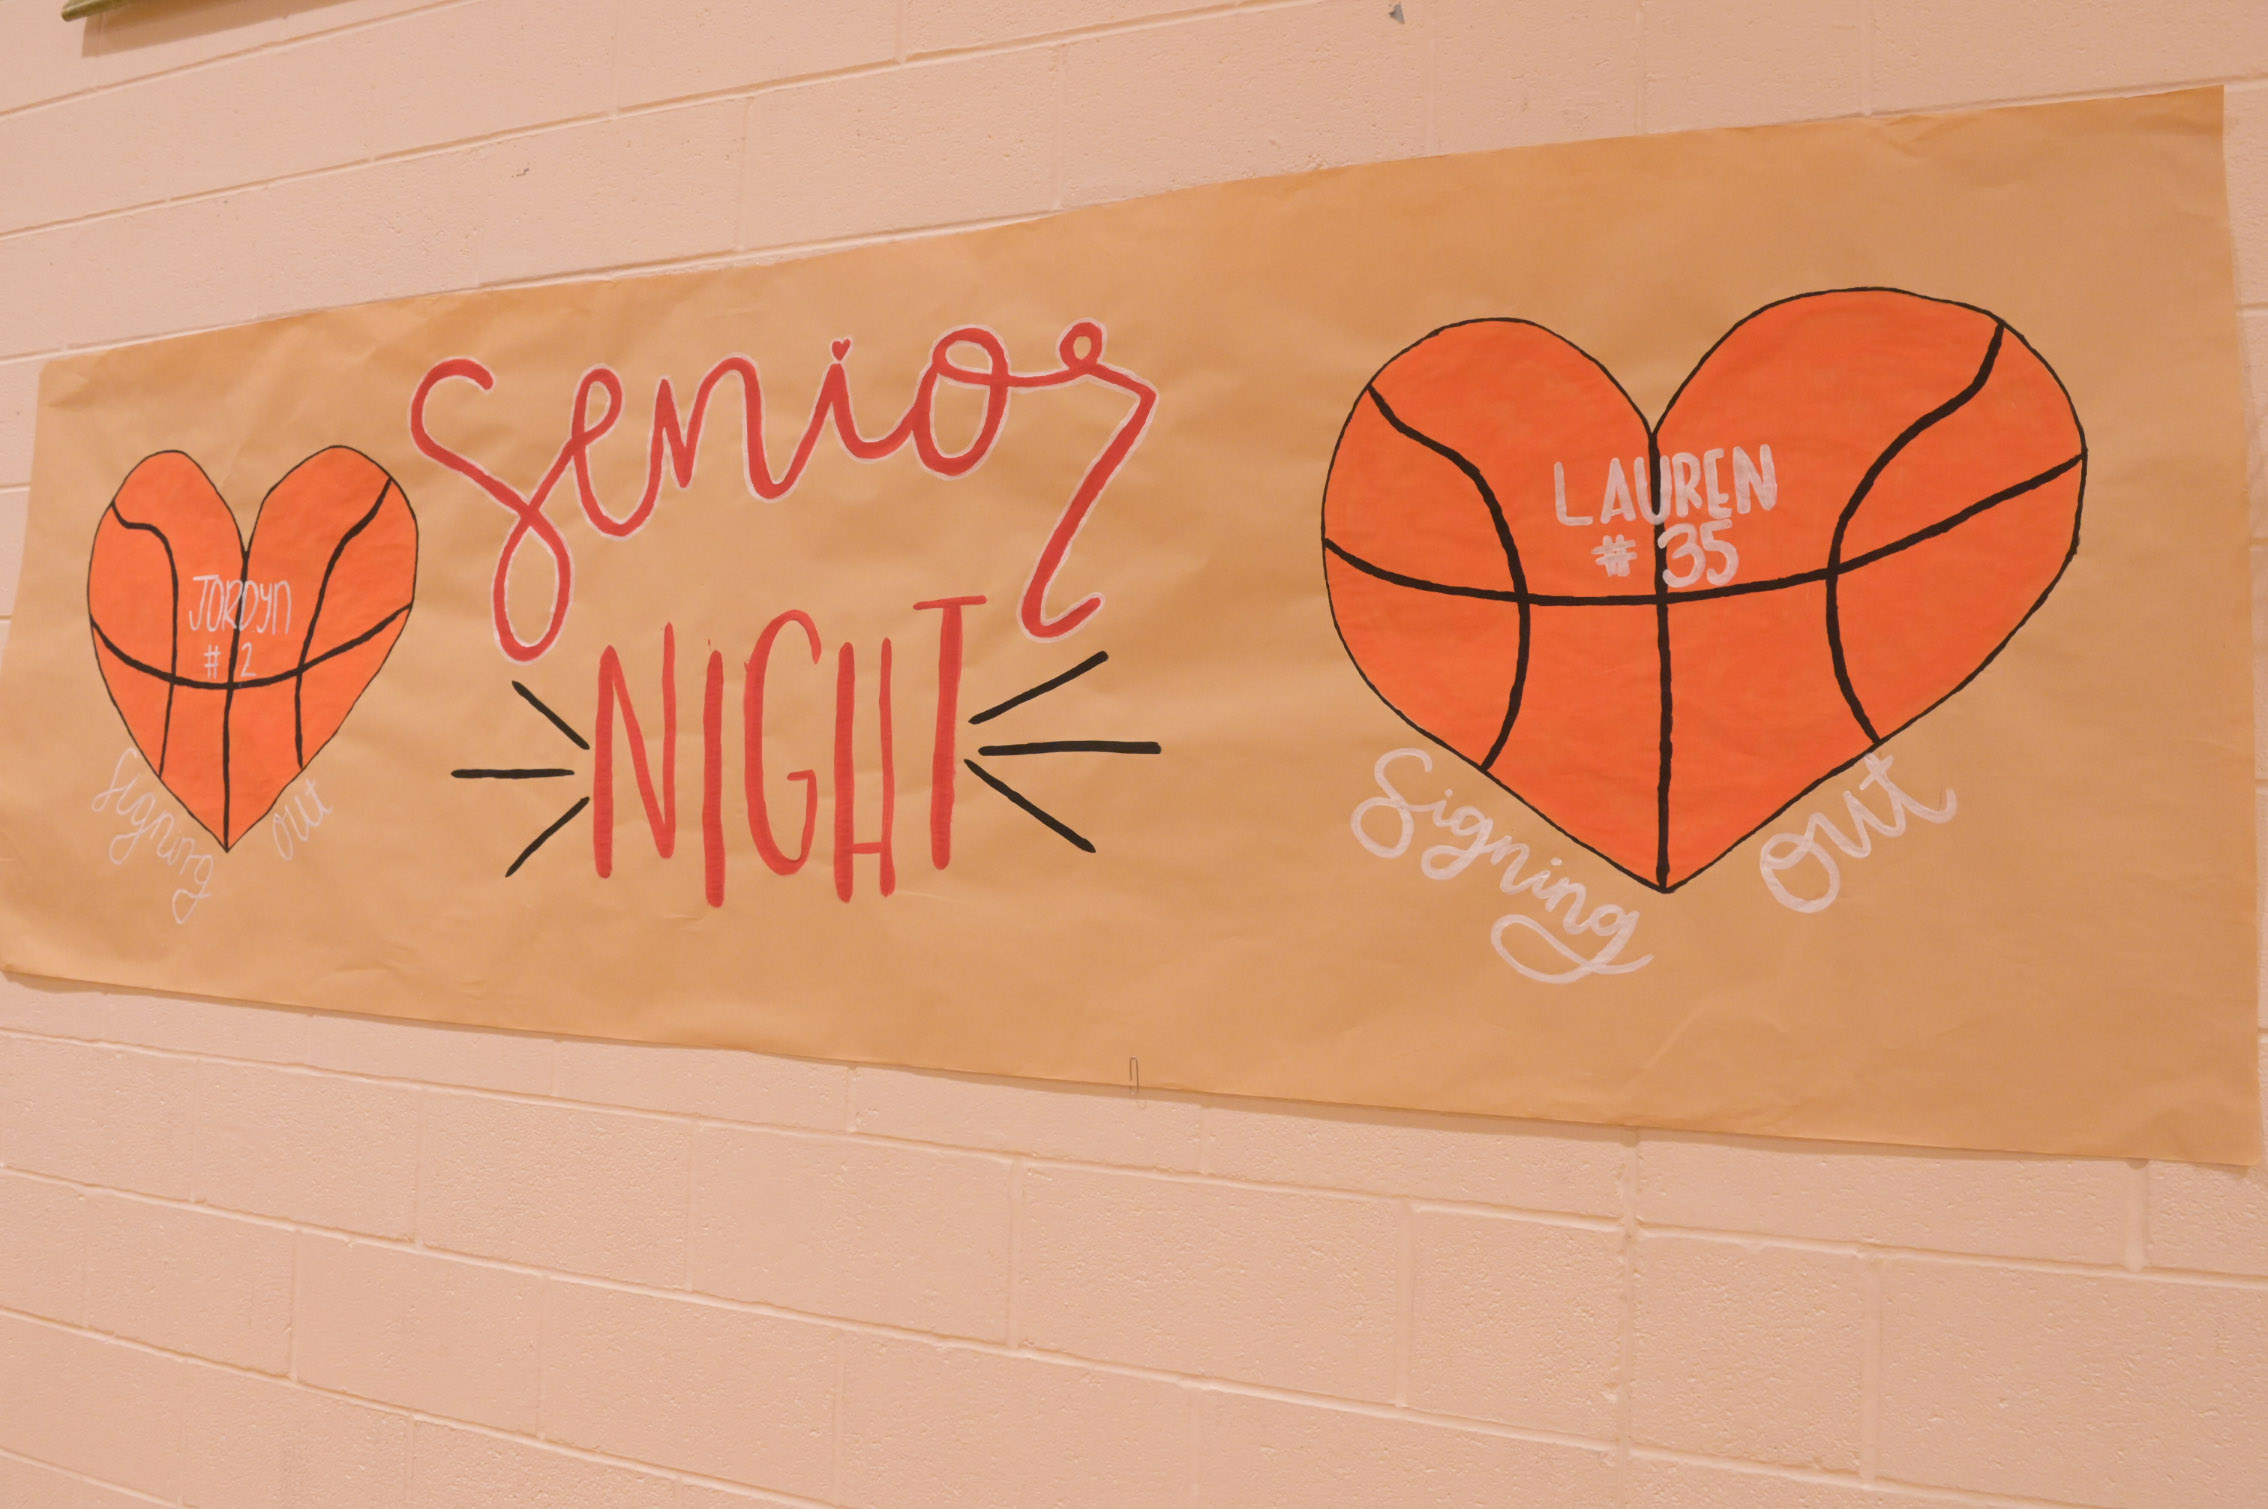 JORDYN
# 2
Signing out
Senior
NIGHT
LAUREN
# 35
Signing out